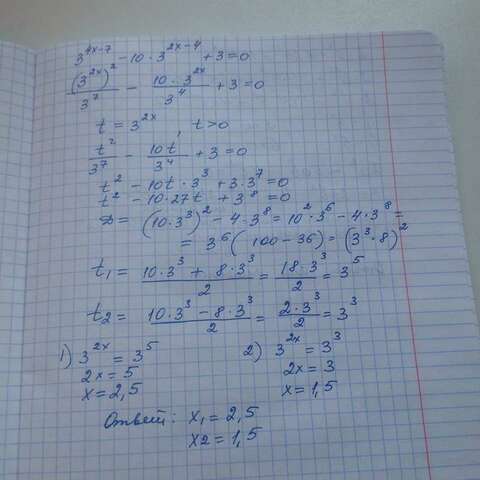 3^{4x-7} - 10 · 3^{2x-4} + 3 = 0
(3^{2x})^2/3^7 - 10 · 3^{2x}/3^4 + 3 = 0
t = 3^{2x}, t > 0
t^2/3^7 - 10t/3^4 + 3 = 0
t^2 - 10t · 3^3 + 3 · 3^7 = 0
t^2 - 10 · 27t + 3^8 = 0
D = (10 · 3^3)^2 - 4 · 3^8 = 10^2 · 3^6 - 4 · 3^8 =
= 3^6 (100 - 36) = (3^3 · 8)^2
t_1 = (10 · 3^3 + 8 · 3^3)/2 = 18 · 3^3/2 = 3^5
t_2 = (10 · 3^3 - 8 · 3^3)/2 = 2 · 3^3/2 = 3^3
1) 3^{2x} = 3^5
2x = 5
x = 2,5
2) 3^{2x} = 3^3
2x = 3
x = 1,5
Ответ: x_1 = 2,5
x2 = 1,5